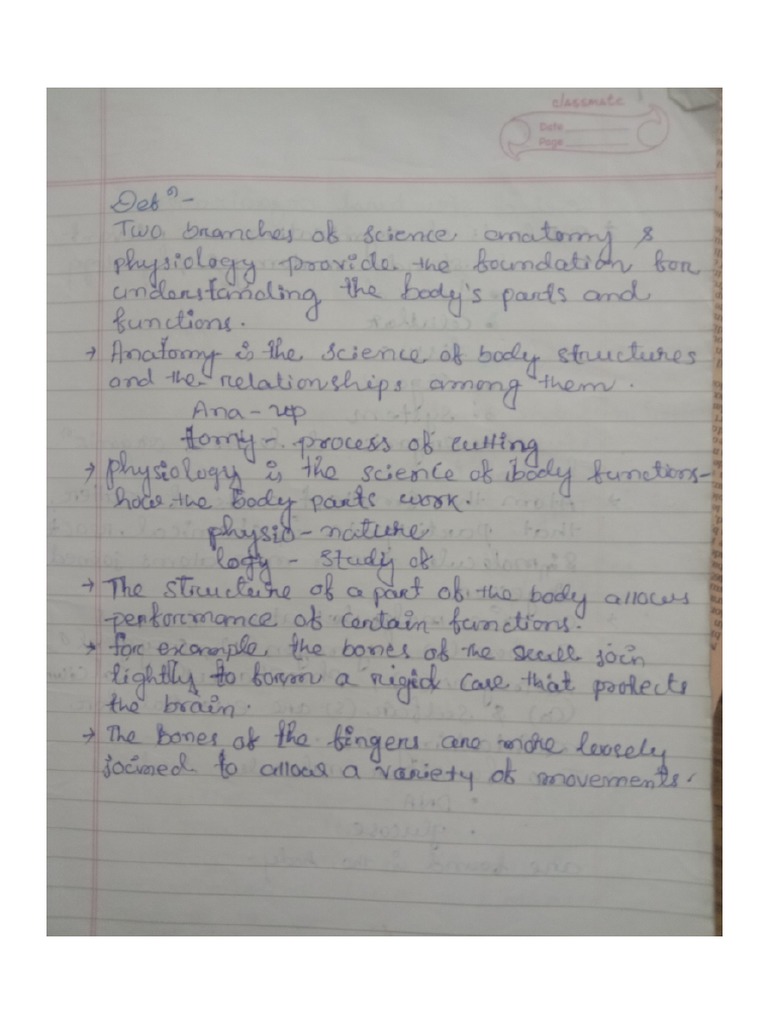 classmate
Date
Page
Defⁿ -
Two branches of science anatomy &
physiology provide the foundation for
understanding the body's parts and
functions.
→ Anatomy is the science of body structures
and the relationships among them.
Ana - up
tomy - process of cutting
→ physiology is the science of body functions -
how the body parts work.
physio - nature
logy - study of
→ The structure of a part of the body allows
performance of certain functions.
→ for example, the bones of the skull join
tightly to form a rigid case that protects
the brain.
→ The bones of the fingers are more loosely
joined to allow a variety of movements.